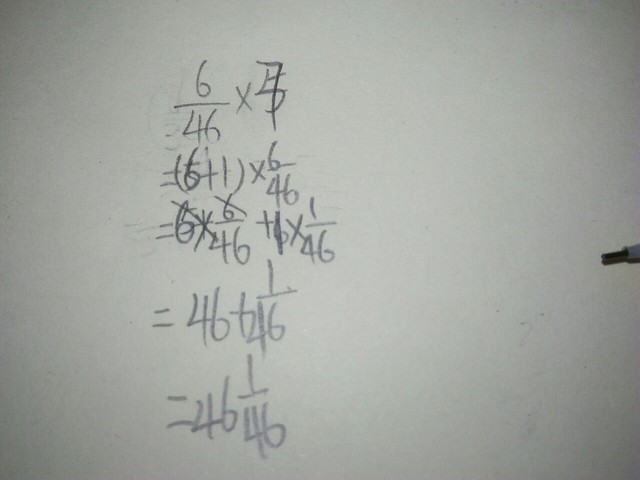 6/46 ×
=(6+1)×6/46
=6×6/46+1×1/46
=46+1/46
=46 1/46